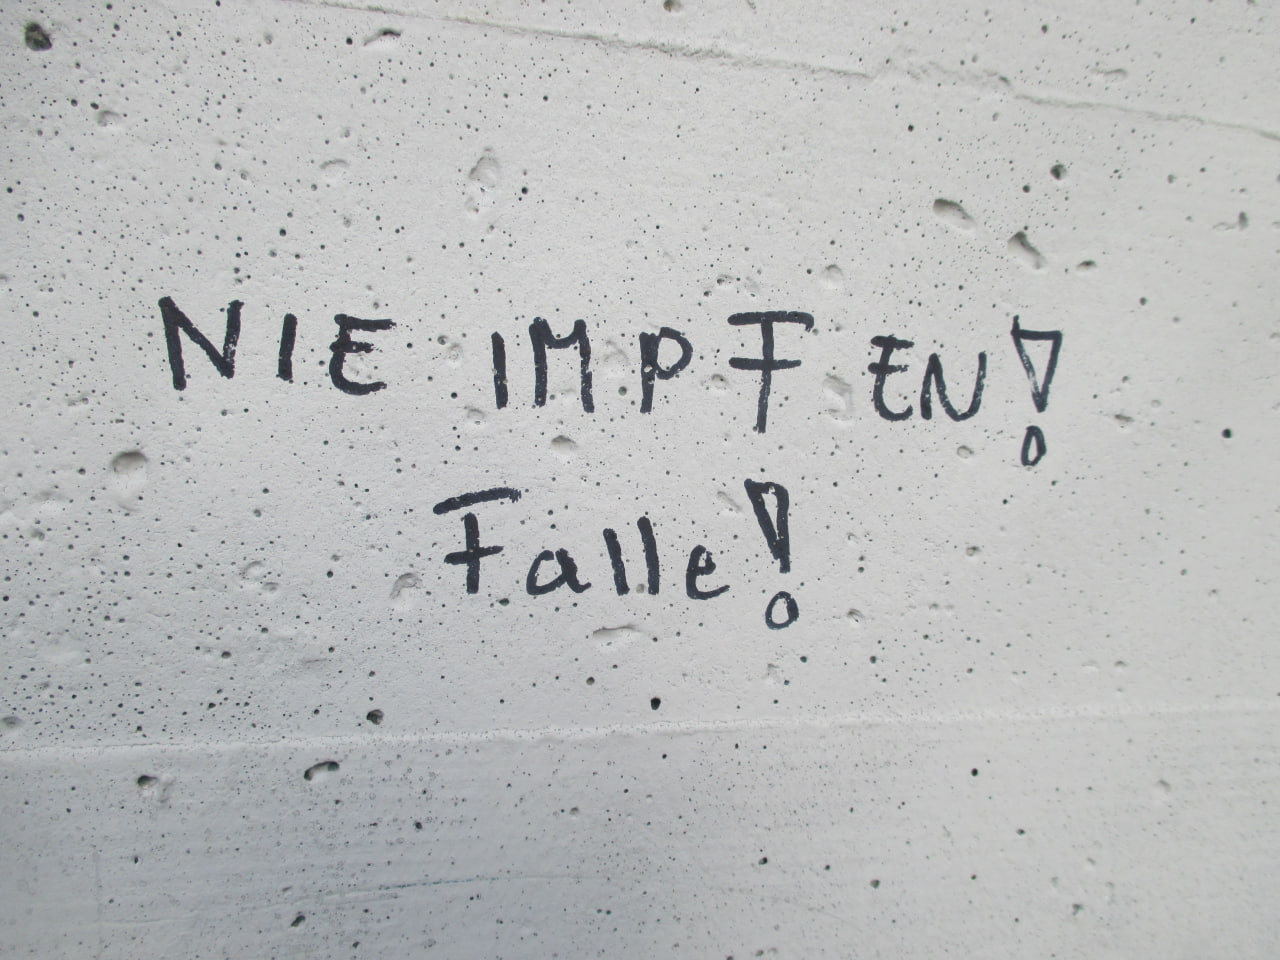 NIE IMPFEN!
Falle!